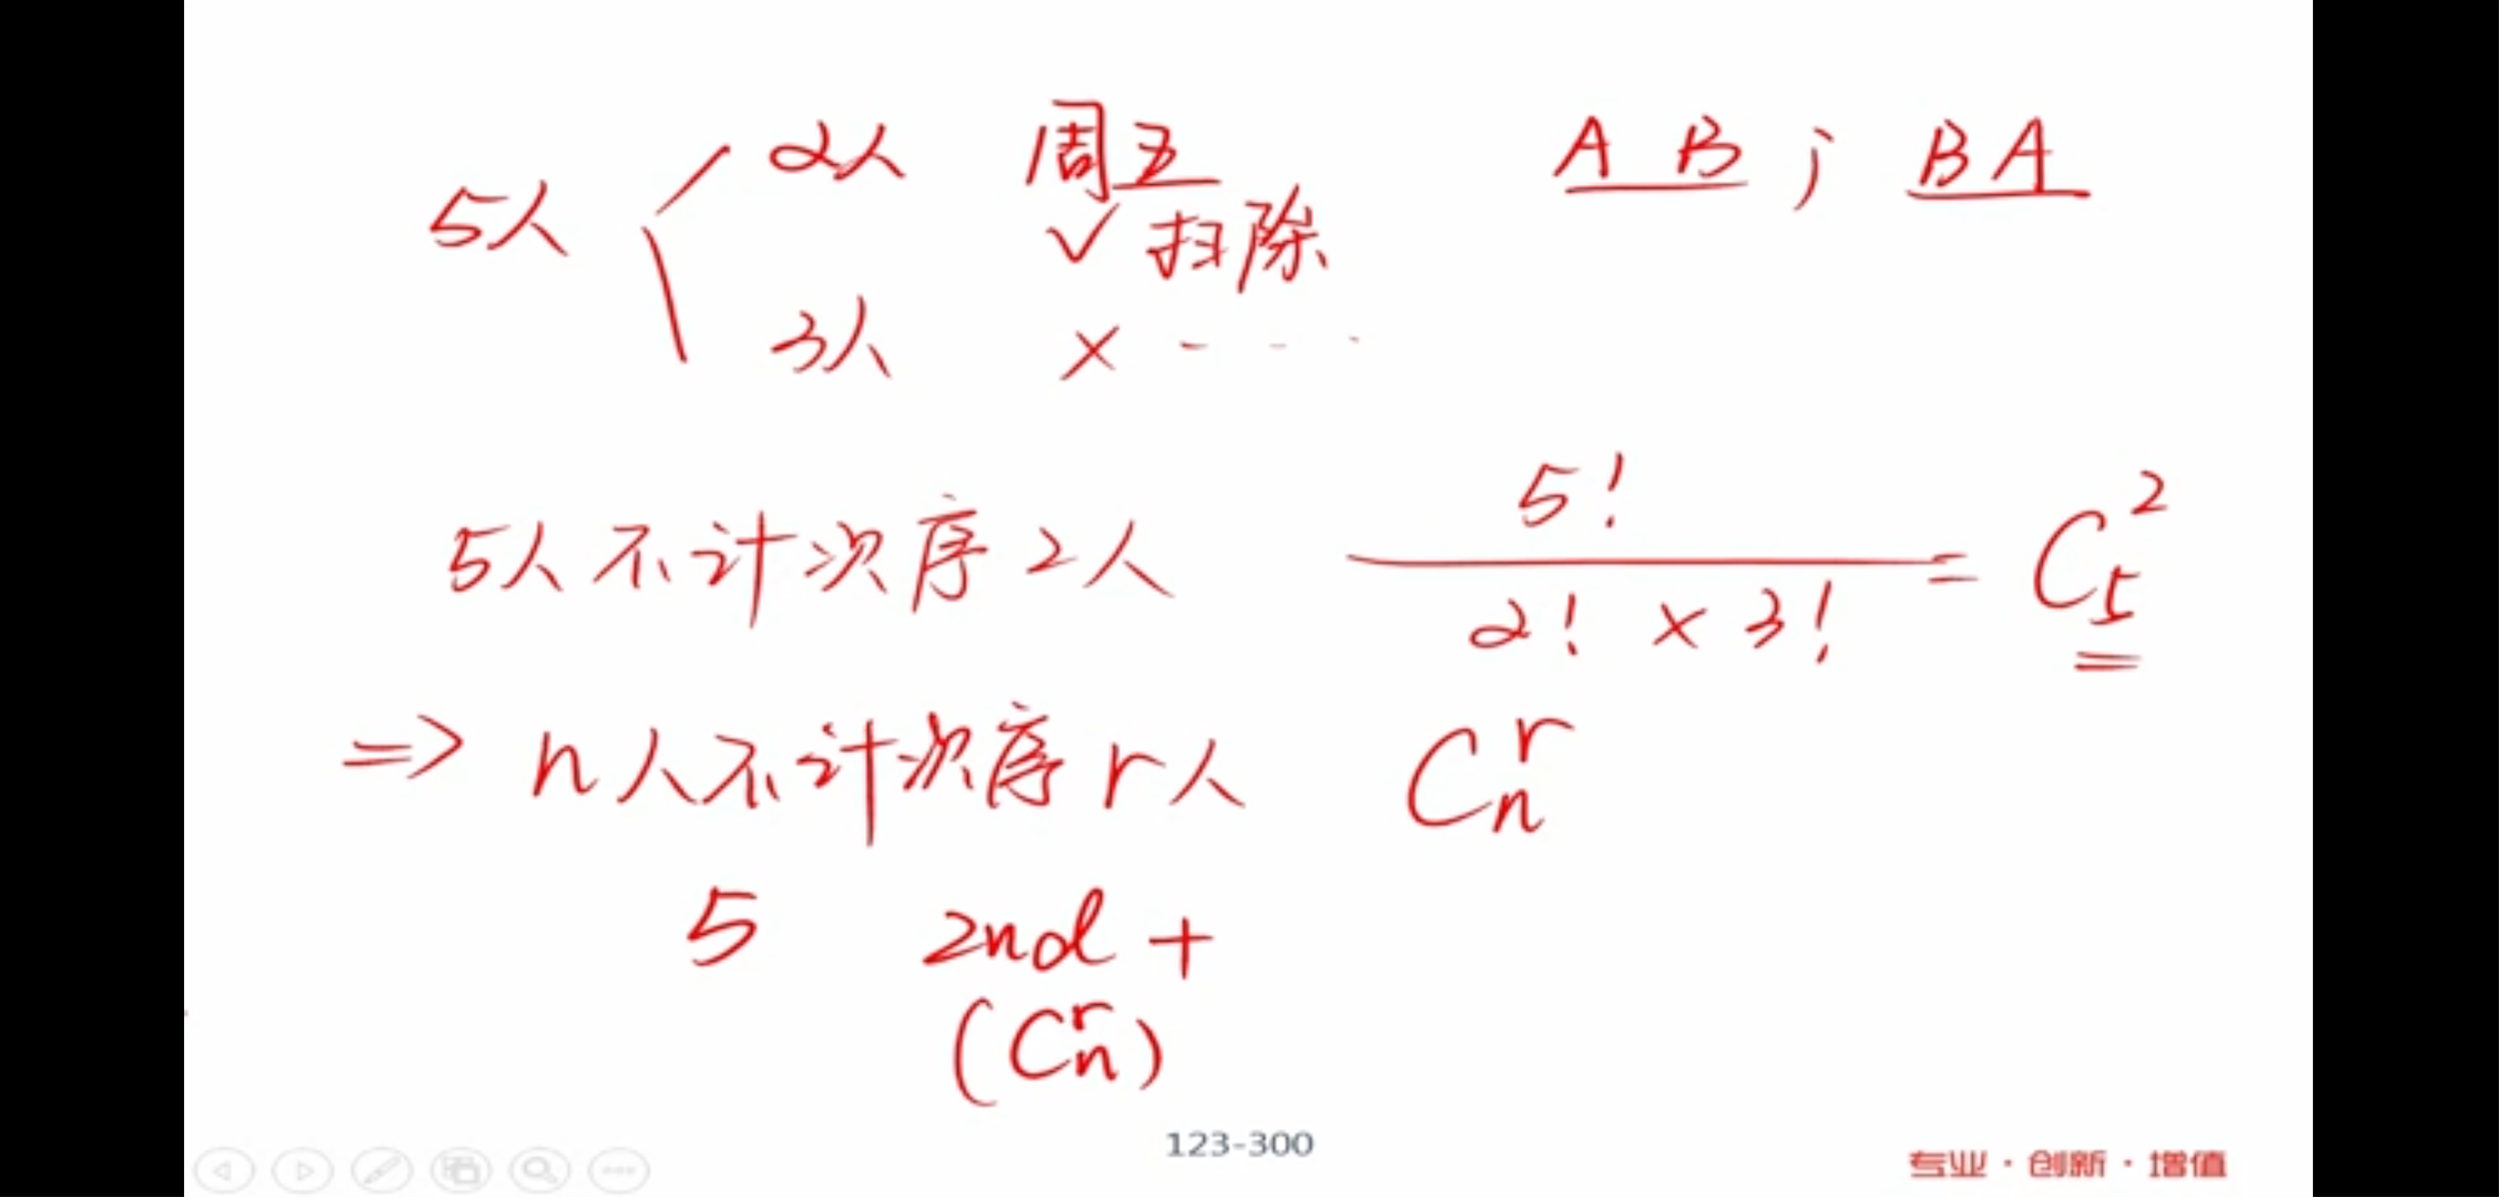 5人 2人 周五 AB ; BA
✓扫除
3人 × - - -
5人不计次序2人 5! / 2! × 3! = C₅²
⇒ n人不计次序r人 Cₙʳ
5 2nd +
(Cₙʳ)
123-300
专业·创新·增值